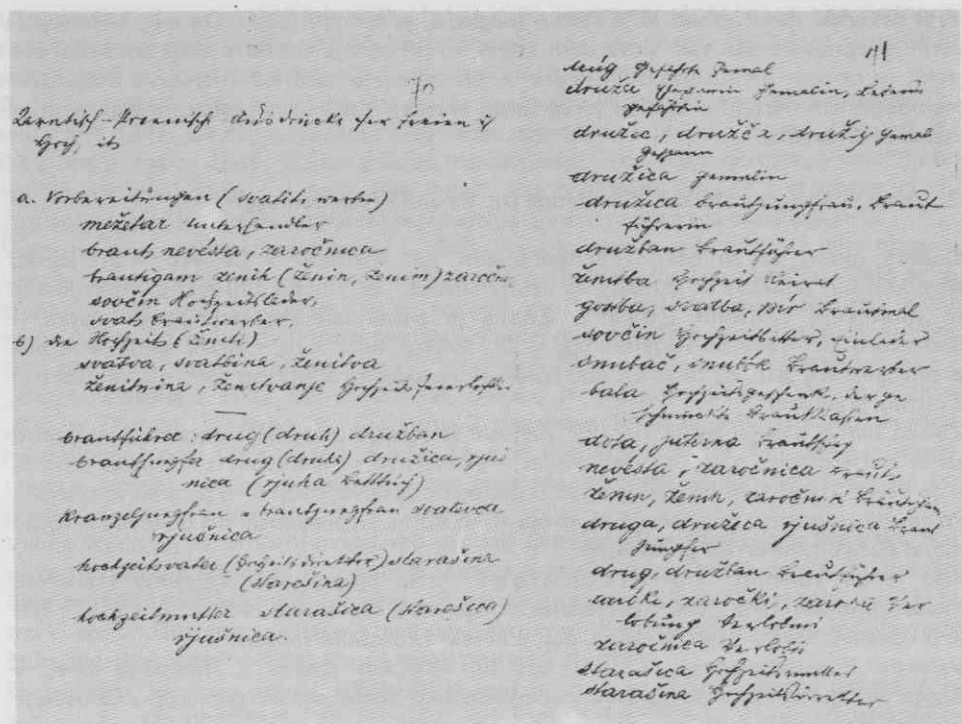 70
Karntisch-Krainisch Ausdrücke der freien
Hoch
a. Vorbereitungen (svatiti werben)
mežetar unterhändler
braut, nevésta, zaročnica
brautigam ženih (ženin, ženim) zaročn
sovčin Hochzeitslader,
svat, brautwerber,
b) die Hochzeit (ženiti)
svatva, svatbina, ženitva
ženitnina, ženitvanje
brautführer: drug (druh) družban
brautjungfer drug (druh) družica, rjuš
nica (rjuha
Kranzeljungfrau = brautjungfrau svatovca
rjušnica
hochzeitsvater (Hochzeitsdirektor) starašina
(starešina)
hochzeitmutter starašica (starešica)
rjušnica.
41
múg gemal
druža gemalin,
gefährtin
družec, družče, gemal
gespann
družica gemalin
družica brautjungfrau, braut
führerin
družban brautführer
ženitba Hochzeit Heirat
gostba, svatba, pir
sovčin Hochzeitbitter, einlader
snubač, snubok brautwerber
bala Hochzeitsgeschenk, der ge
schmückte brautkasten
dota, juterna
nevésta, zaročnica braut,
ženin, ženih, zaročnik bräutigam
druga, družica rjušnica braut
jungfer
drug, družban brautführer
zaročki, Ver
lobung
zaročnica Verlobte
starašica Hochzeitsmutter
starašina Hochzeitsdirektor